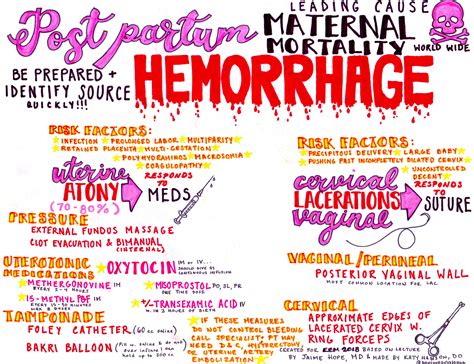 Post partum
LEADING CAUSE
MATERNAL
MORTALITY
WORLD WIDE
BE PREPARED +
IDENTIFY SOURCE
QUICKLY!!!
HEMORRHAGE
RISK FACTORS:
INFECTION PROLONGED LABOR MULTIPARITY
RETAINED PLACENTA MULTI-GESTATION
POLYHYDRAMNIOS MACROSOMIA
COAGULOPATHY
uterine
ATONY
(70-80%)
RESPONDS
TO
MEDS
PRESSURE
EXTERNAL FUNDUS MASSAGE
CLOT EVACUATION & BIMANUAL
(INTERNAL)
UTEROTONIC
MEDICATIONS
OXYTOCIN IM or IV...
SHOULD GIVE AS
METHERGONOVINE IM
EVERY 2-4 HOURS
MISOPROSTOL PO, SL, PR
ONE TIME DOSE
15-METHYL PGF IM
EVERY 15-90 MINUTES
+/- TRANSEXAMIC ACID IV
TAMPONADE
FOLEY CATHETER (60 cc online)
BAKRI BALLOON
IF THESE MEASURES
DO NOT CONTROL BLEEDING
CALL SPECIALIST PT MAY
NEED D&C, HYSTERECTOMY
OR UTERINE ARTERY
EMBOLIZATION
RISK FACTORS:
PRECIPITOUS DELIVERY LARGE BABY
PUSHING PAST INCOMPLETELY DILATED CERVIX
UNCONTROLLED
DECENT
cervical
LACERATIONS
vaginal
RESPONDS
TO
SUTURE
VAGINAL/PERINEAL
POSTERIOR VAGINAL WALL
MOST COMMON LOCATION FOR LAC
CERVICAL
APPROXIMATE EDGES OF
LACERATED CERVIX W.
RING FORCEPS
CREATED FOR EEM 2018 BASED ON LECTURE
BY JAIME HOPE, MD & MADE BY KATY HANSON,